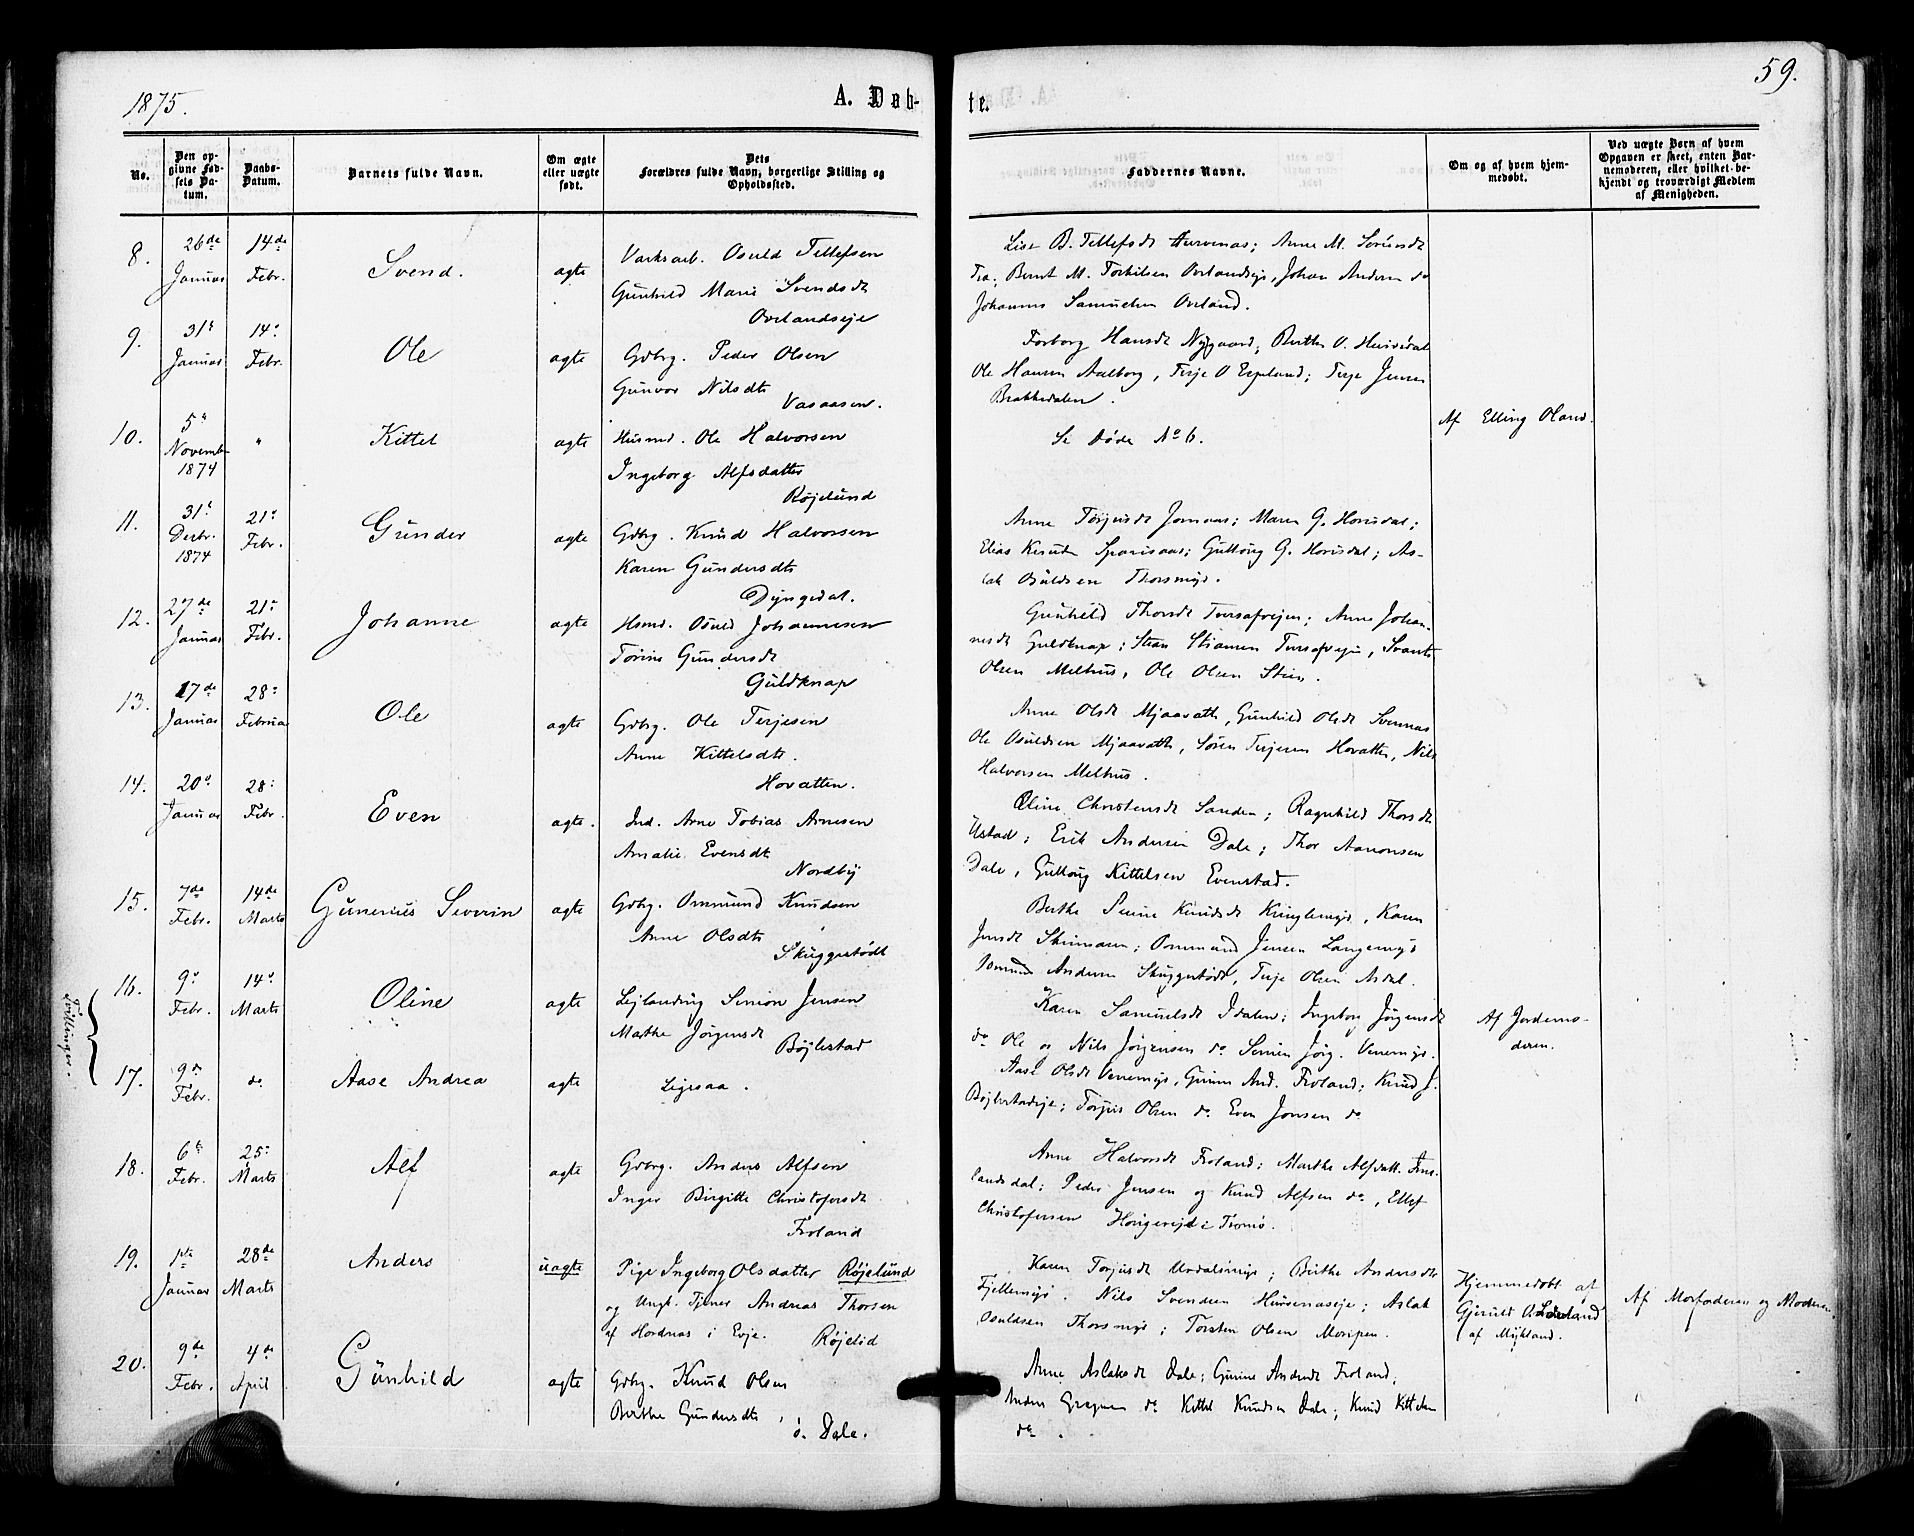 1875.
A. Døb-
te.
59.
No.
Den opgivne Fødsels Datum.
Daabs-Datum.
Barnets fulde Navn.
Om ægte eller uægte født.
Dets Forældres fulde Navn, borgerlige Stilling og Opholdssted.
Faddernes Navne.
Om og af hvem hjemmedøbt.
Ved uægte Børn af hvem Opgaven er skeet, enten Barnemoderen, eller hvilket bekjendt og troværdigt Medlem af Menigheden.
8. 26de Januar 14de Febr. Svend. ægte
Værksarb. Osuld Tellefsen
Gunhild Marie Svendsdt
Ovelandseje
Lise B. Tellefsdt Aurvenas; Anne M.
Bernt M. Torkilsen Ovelandseje, Johan Andersen do
Johannes Samuelsen Oveland.
9. 31t Januar 14. Febr. Ole ægte
Gdbrg. Peder Olsen
Gunvor Nilsdt
Vasaasen.
Torborg Hansdt Nygaard; Berthe O.
Ole Hansen Aalborg, Terje O Espeland; Terje Jensen
Brakkedalen.
10. 5t November 1874 " Kittel ægte
Husmd. Ole Halvorsen
Ingeborg Alfsdatter
Røjelund
Se Døde No 6.
Af Elling Oland.
11. 31t Decbr. 1874 21. Febr. Gunder ægte
Gdbrg. Knud Halvorsen
Karen Gundersdt
Dyngedal.
Anne Torjusdt Jomaas; Maren G. Horisdal;
Elias Knuds. Sparsaas; Guttorm G. Horisdal; As-
lak Osuldsen Thorsmyr.
12. 27de Januar 21. Febr. Johanne ægte
Hsmd. Osuld Johannesen
Torine Gundersdt
Guldknap
Gunhild Thorsdt Anne Johan-
nesdt Guldknap; Stian Stiansen
Olsen Melhus, Ole Olsen Stien.
13. 17de Januar 28. Februar Ole ægte
Gdbrg. Ole Terjesen
Anne Kittelsdt.
Hovatten.
Anne Olsdt Mjaavatn, Gunhild Olsdt Svennas
Ole Osuldsen Mjaavatn, Søren Terjesen Hovatten, Nils
Halvorsen Melhus.
14. 20. Januar 28. Febr. Even ægte.
Ind. Arne Tobias Arnesen
Amalie Evensdt
Nordby
Oline Christensdt Sanden; Ragnhild Thorsdt
Ustad; Erik Andersen Dale; Thor Aanonsen
Dale, Guttorm Kittelsen Evenstad.
15. 7de Febr. 14de Marts Gunerius Severin ægte
Gdbrg. Ommund Knudsen
Anne Olsdt
Skuggestødt
Berthe Serine Knudsdt Kringlemyr, Karen
Jensdt Ommund Jensen Langemyr
Ommund Andersen Skuggestødt, Terje Olsen Asdal.
Tvillinger.
16. 9. Febr. 14. Marts Oline ægte
Lejlænding Simon Jensen
Marthe Jørgensdt
Bøjlestad
Karen Samuelsdt Idalen; Ingeborg Jørgensdt
do Ole og Nils Jørgensen do Søren Jørg. Venemyr.
Af Jordemo-
deren.
17. 9de Febr. do Aase Andrea ægte
Ligesaa.
Aase Olsdt Venemyr, Gurine And. Froland; Knud J.
Bøjlestadeje; Torjus Olsen do Even Jonsen do
18. 6te Febr. 25. Marts Alf ægte
Gdbrg. Anders Alfsen
Inger Birgitte Christofersdt
Froland
Anne Halvorsdt Froland; Marthe Alfsdatt. Fro-
landsdal; Peder Jensen og Knud Alfsen do, Ellef
Christofersen i Tromø.
19. 1ste Januar 28de Marts Anders uægte
Pige Ingeborg Olsdatter Røjelund
og Ungk. Tjener Andreas Thorsen
af Hordnas i Evje. Røjelid
Karen Torjusdt Uvdalsmyr; Berthe Andersdt
Fjellemyr. Nils Svendsen Aslak
Osuldsen Thorsmyr; Torsten Olsen Moripen.
Hjemmedøbt af
Gjeruld
af Mykland.
Af Morfaderen og Moderen
20. 9de Febr. 4de April Gunhild ægte
Gdbrg. Knud Olsen
Berthe Gundersdt
ö. Dale.
Anne Aslaksdt Dale; Gurine Andersdt Froland,
Anders do Kittel Knudsen Dale; Knud Kittelsen
do.